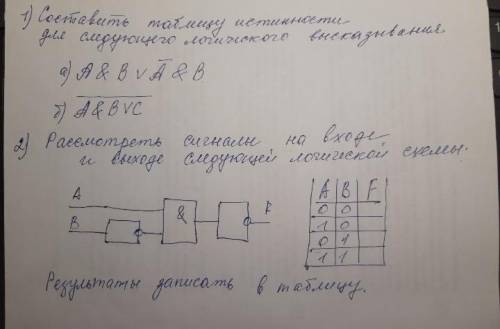 1) Составить таблицу истинности
для следующего логического высказывания
а) A & B ∨ A̅ & B
б) A̅ ̅&̅ ̅B̅ ̅∨̅ ̅C̅
2) Рассмотреть сигналы на входе
и выходе следующей логической схемы.
A
B
&
F
A B F
0 0
1 0
0 1
1 1
Результаты записать в таблицу.